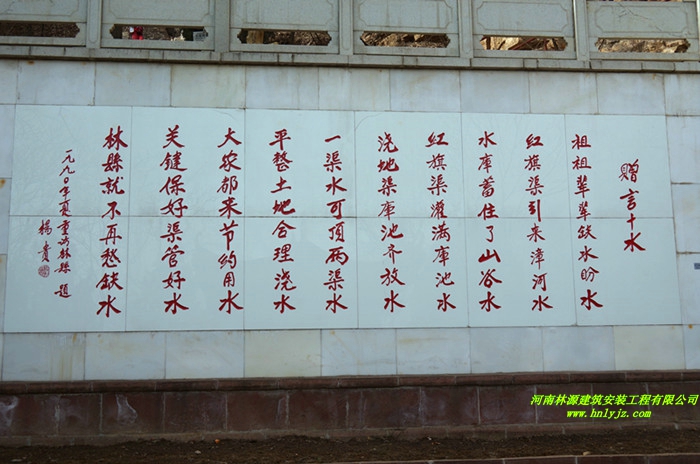 赠言十水
祖祖辈辈缺水盼水
红旗渠引来漳河水
水库蓄住了山谷水
红旗渠灌满库池水
浇地渠库池齐放水
一渠水可顶两渠水
平整土地合理浇水
大家都来节约用水
关键保好渠管好水
林县就不再愁缺水
一九九〇年夏重访林县题
杨贵
河南林源建筑安装工程有限公司
www.hnlyjz.com